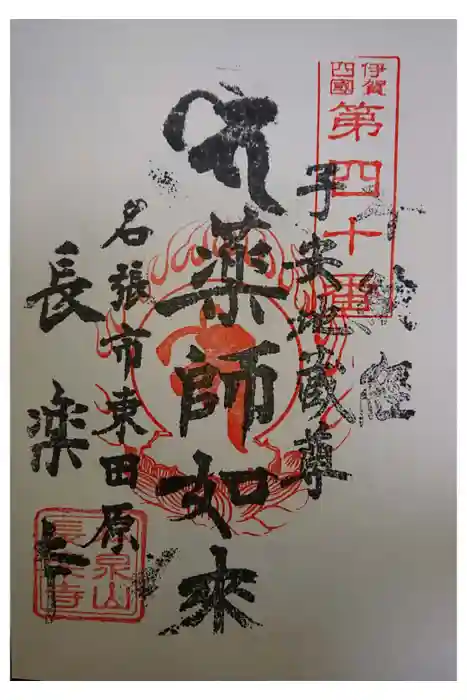 伊賀
四國
第四十番
奉納経
子安地蔵尊
薬師如来
名張市東田原
長楽寺
泉山
長楽寺